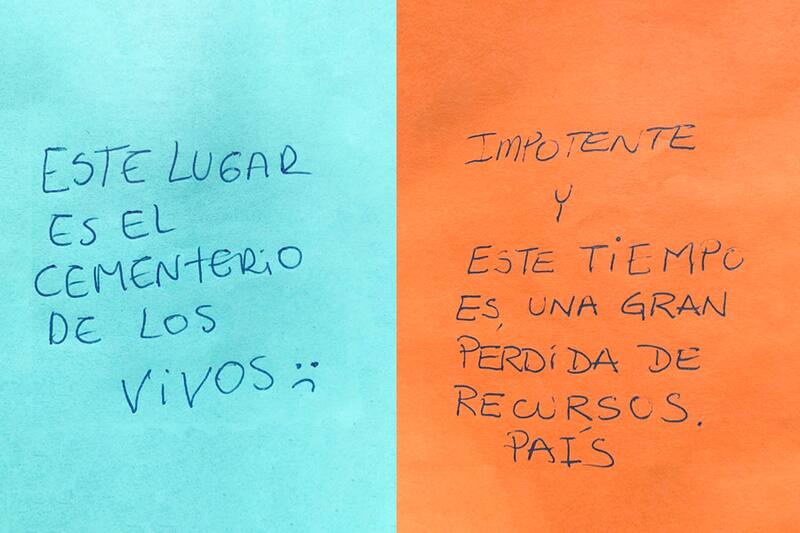 ESTE LUGAR
ES EL
CEMENTERiO
DE LOS
ViVOS :(
IMPOTENTE
Y
ESTE TiEMPO
ES, UNA GRAN
PERDiDA DE
RECURSOS.
PAÍS